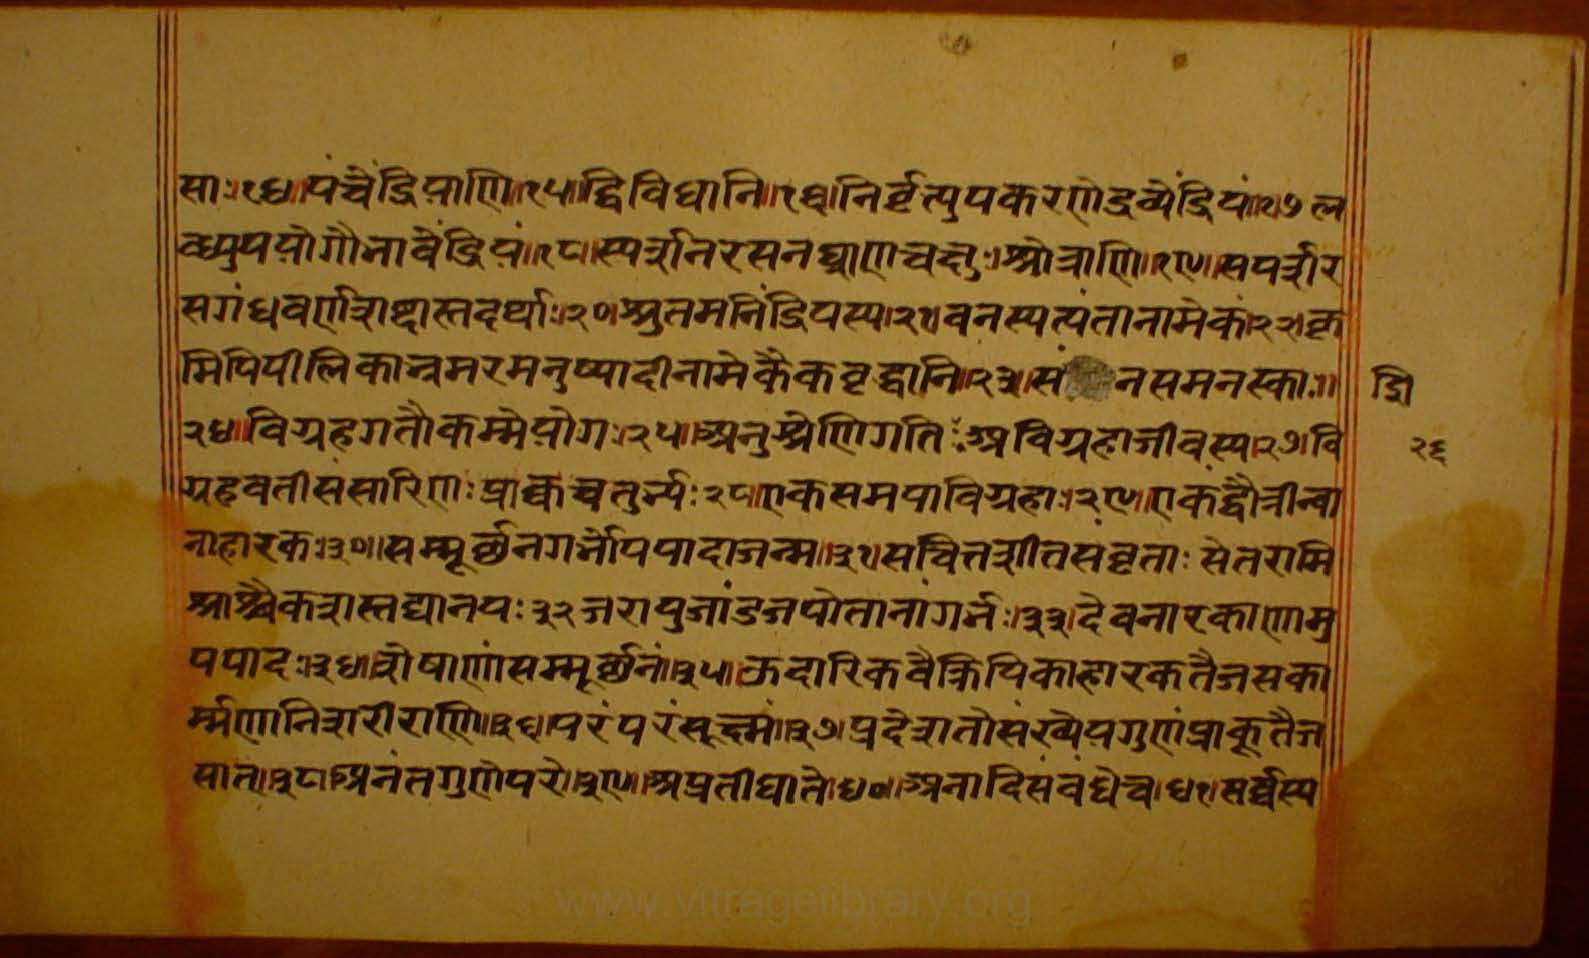 साः।१४।पंचेंद्रियाणि।१५।द्विविधानि।१६।निर्वृत्युपकरणेद्रव्येंद्रियं।१७ल
ब्ध्युपयोगौभावेंद्रियं।१८।स्पर्शनरसनघ्राणचक्षुःश्रोत्राणि।१९।सपर्शर
सगंधवर्णशब्दास्तदर्थाः।२०।श्रुतमनिंद्रियस्य।२१।वनस्पत्यंतानामेकं।२२।कृ
मिपिपीलिकाभ्रमरमनुष्यादीनामेकैकवृद्धानि।२३।सं नसमनस्काः।।
द्गि
२४।विग्रहगतौकर्म्मयोगः।२५।अनुश्रेणिगतिःअविग्रहाजीवस्य।२७।वि
२६
ग्रहवतीसंसारिणःप्राक्चचतुर्भ्यः२८।एकसमयाविग्रहाः।२९।एकंद्वौत्रीन्वा
नाहारकः।३०।सम्मूर्छनगर्भोपपादाजन्म।३१।सचित्तशीतसंवृताःसेतरामि
श्राश्चैकशस्तद्योनयः३२जरायुजांडजपोतानांगर्भः।३३।देवनारकाणामु
पपादः।३४।शेषाणांसम्मूर्छनं।३५।ऊदारिकवैक्रियिकाहारकतैजसका
र्म्मणानिशरीराणि।३६।परंपरंसूक्ष्मं।३७।प्रदेशतोसंख्येयगुणंप्राक्तैज
सात्।३८।अनंतगुणेपरे।३९।अप्रतीघाते।४०।अनादिसंबंधेच।४१।सर्व्वस्य
www.vitragelibrary.org